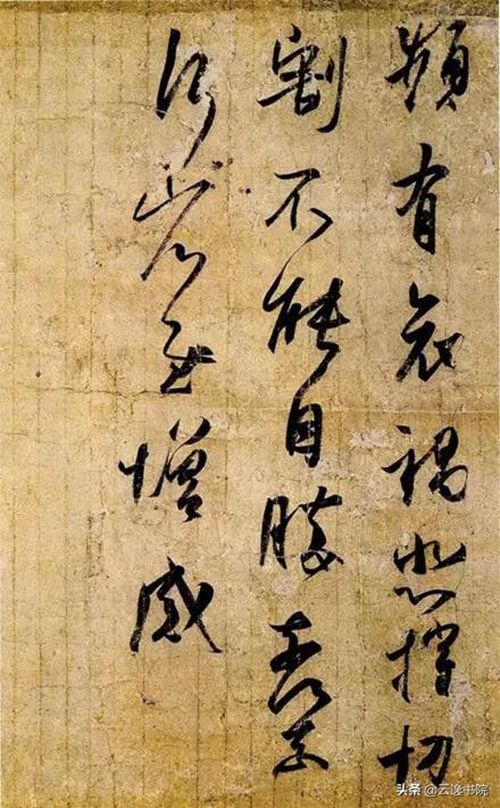 频有哀祸悲摧切
割不能自胜奈何奈
何省慰增感
头条 @云逸书院